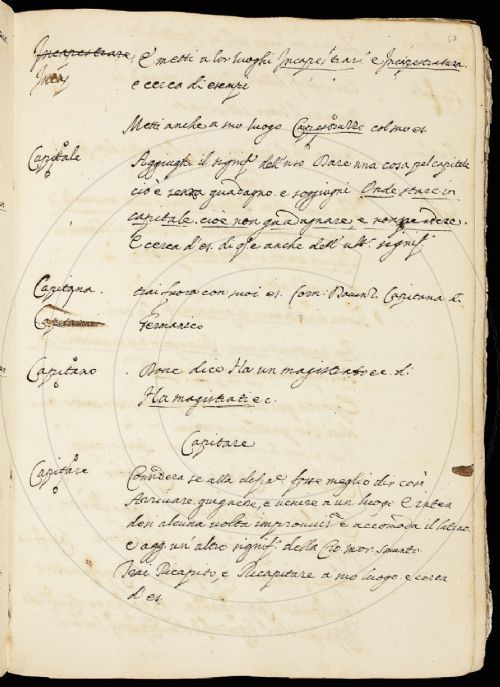 60
Incapestrare, e metti a lor luoghi Incapestrari e Incapestratura
e cerca di esempi
Metti anche a suo luogo col suo es.
Capitale Aggiugni il signif. dell'uso Dare una cosa pel capitale
cioè senza guadagno. e soggiugni Onde stare in
capitale, cioè non guadagnare, e non perdere.
E cerca d'es. di q.o e anche dell' ult.o signif.
Capitana. trai fuora con suoi es. Capitana d.
Capitana Germanico
Capitano. Dove dice Ha un magistrato ec. d.
Ha magistrati ec.
Capitare
Capitare Considera se alla forse meglio dir così
Arrivare, giugnere, e venire a un luogo. E
alcuna volta e accomoda il latino.
e agg. un' altro signif. della
Trai Ricapito, e Ricapitare a suo luogo e cerca
d'es.